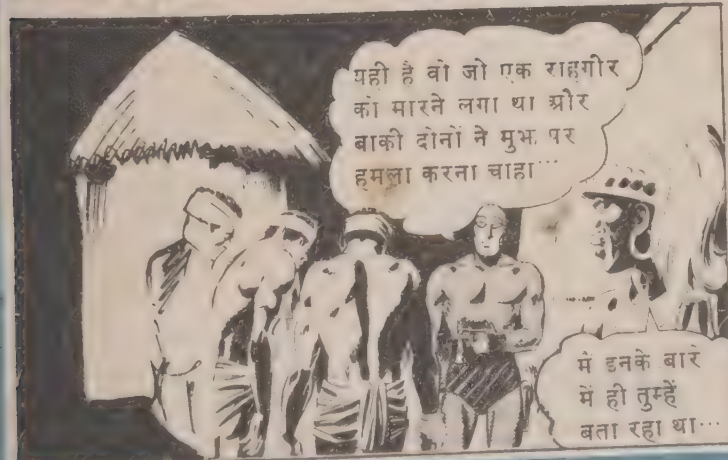 यही है वो जो एक राहगीर
को मारने लगा था और
बाकी दोनों ने मुझ पर
हमला करना चाहा…
मैं इनके बारे
में ही तुम्हें
बता रहा था…